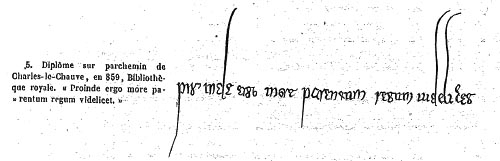 5. Diplôme sur parchemin de
Charles-le-Chauve, en 859, Bibliothè-
que royale. « Proinde ergo more pa-
« rentum regum videlicet. »
proinde ergo more parentum regum videlicet